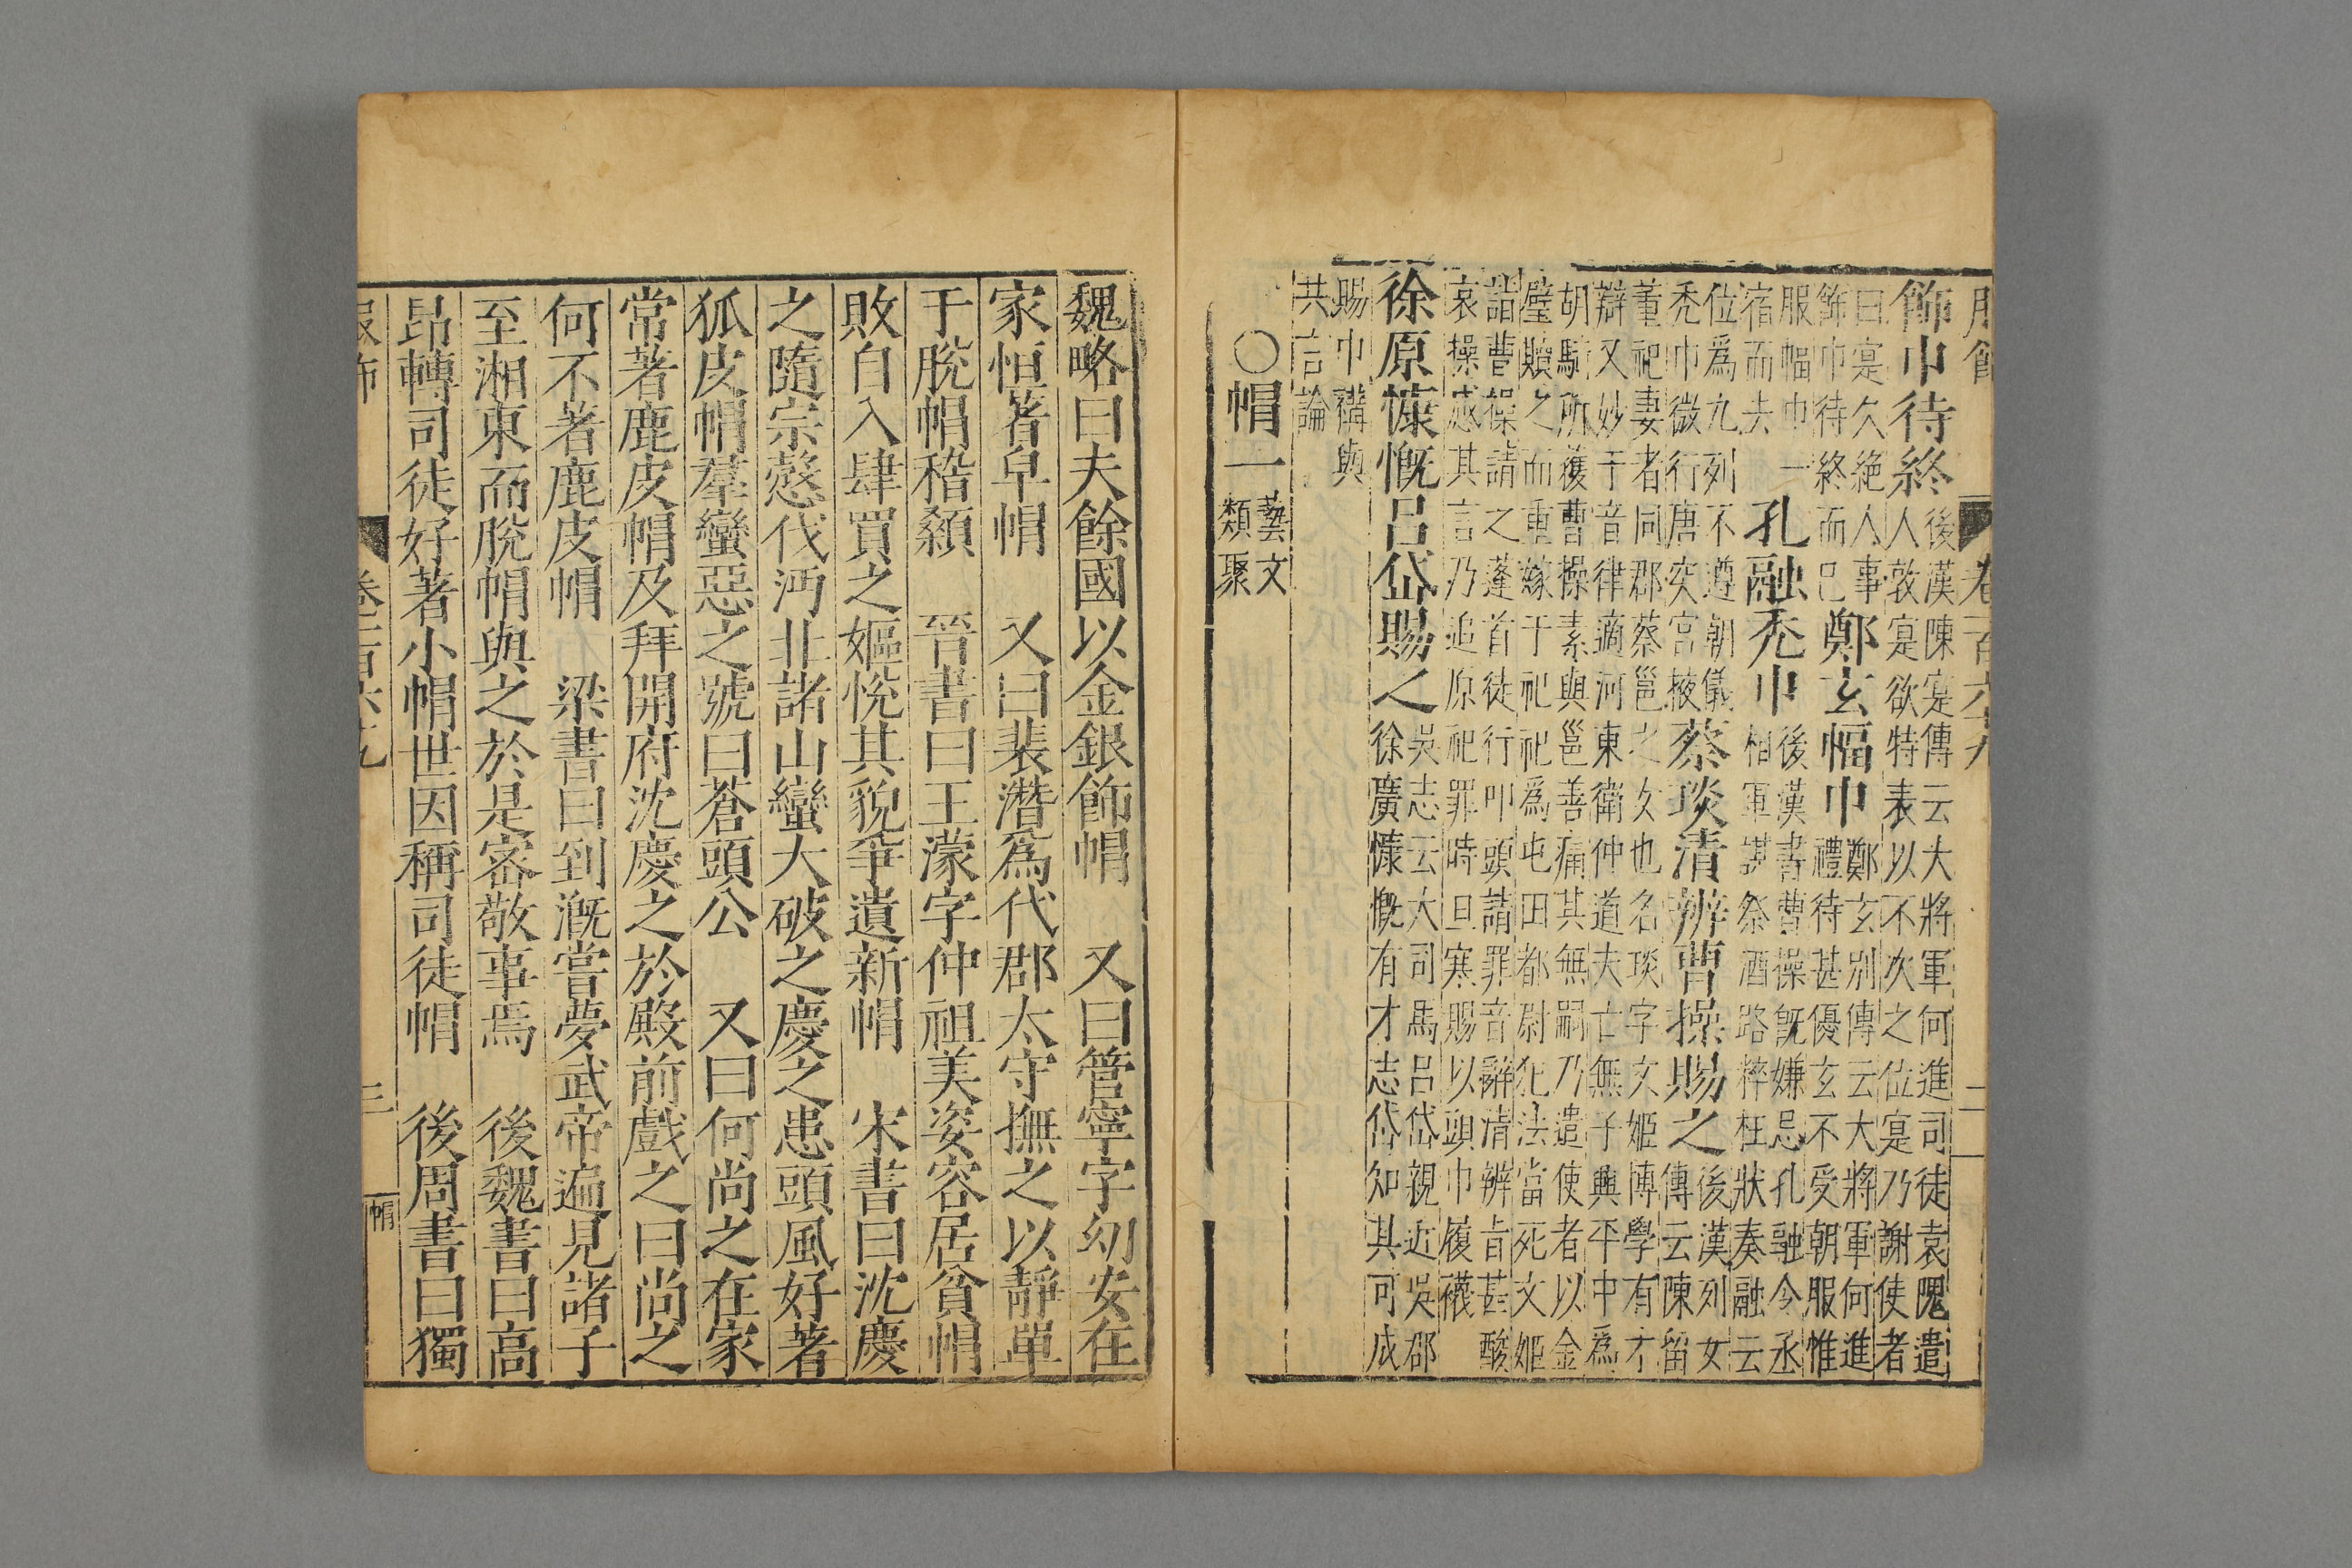 服飾 卷一百六十九 二
飾巾待終後漢陳寔傳云大將軍何進司徒袁隗遣人敦寔欲特表以不次之位寔乃謝使者
曰寔久絶人事飾巾待終而已 鄭玄幅巾鄭玄別傳云大將軍何進禮待甚優玄不受朝服惟
服幅巾一宿而去 孔融禿巾後漢書曹操旣嫌忌孔融令丞相軍謀祭酒路粹枉狀奏融云
位爲九列不遵朝儀禿巾微行唐突宮掖 蔡琰清辨曹操賜之後漢列女傳云陳留
董祀妻者同郡蔡邕之女也名琰字文姬博學有才辯又妙于音律適河東衛仲道夫亡無子興平中爲
胡騎所獲曹操素與邕善痛其無嗣乃遣使者以金璧贖之而重嫁于祀祀爲屯田都尉犯法當死文姬
詣曹操請之蓬首徒行叩頭請罪音辭清辨旨甚酸哀操感其言乃追原祀罪時旦寒賜以頭巾履襪
徐原慷慨呂岱賜之吳志云大司馬呂岱親近吳郡徐廣慷慨有才志岱知其可成
賜巾褠與共言論
○帽一藝文類聚
魏略曰夫餘國以金銀飾帽 又曰管寧字幼安在
家恒著皁帽 又曰裴潛爲代郡太守撫之以靜單
于脫帽稽顙 晉書曰王濛字仲祖美姿容居貧帽
敗自入肆買之嫗悅其貌爭遺新帽 宋書曰沈慶
之隨宗慤伐沔北諸山蠻大破之慶之患頭風好著
狐皮帽羣蠻惡之號曰蒼頭公 又曰何尚之在家
常著鹿皮帽及拜開府沈慶之於殿前戲之曰尚之
何不著鹿皮帽 梁書曰到漑嘗夢武帝遍見諸子
至湘東而脫帽與之於是密敬事焉 後魏書曰高
昂轉司徒好著小帽世因稱司徒帽 後周書曰獨
服飾 卷一百六十九 三 帽